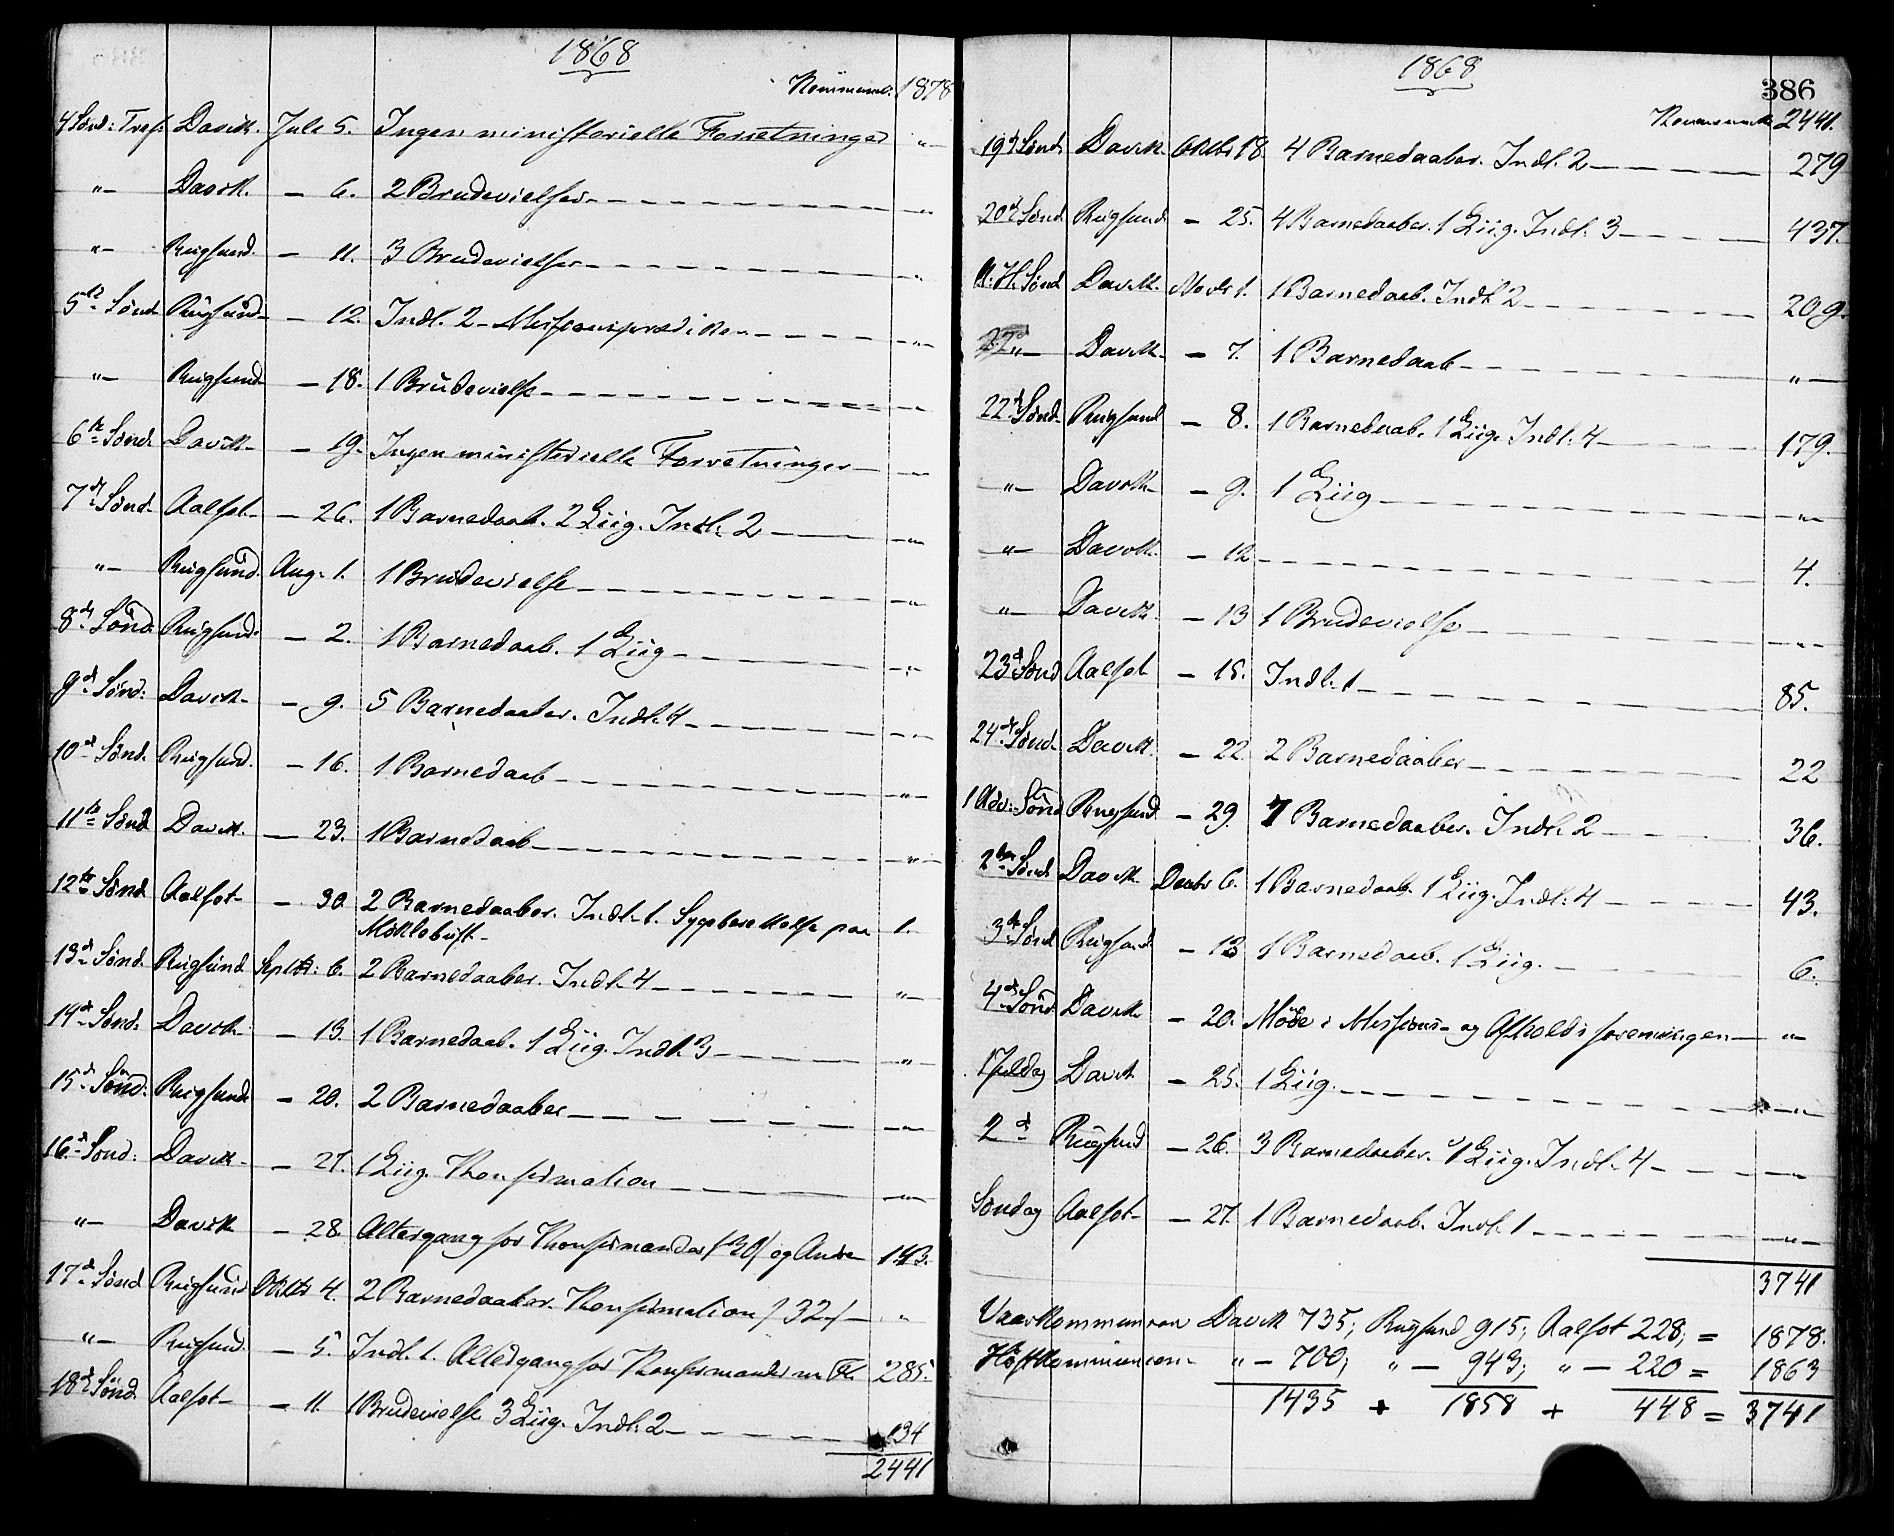 1868
Kommun: 1878
4 Sønd: Tref: Davik. Jule 5. Ingen ministerielle Forretninger "
"— Davik. — 6. 2 Brudevielser "
"— Rugsund. — 11. 3 Brudevielser "
5te Sønd Rugsund — 12. Indl. 2 — Missionsprædiken "
"— Rugsund — 18. 1 Brudevielse "
6te Sønd. Davik — 19. Ingen ministerielle Forretninger "
7de Sønd. Aalfot — 26. 1 Barnedaab. 2 Liig. Indl. 2 "
"— Rugsund. Aug. 1. 1 Brudevielse "
8de Sønd Rugsund. — 2. 1 Barnedaab. 1 Liig "
9de Sønd: Davik — 9. 5 Barnedaaber. Indl. 4
10de Sønd. Rugsund. — 16. 1 Barnedaab "
11te Sønd Davik. — 23. 1 Barnedaab "
12te Sønd Aalfot — 30 2 Barnedaaber. Indl. 1. Sygeberettelse paa 1.
Myklebust
13de Sønd. Rugsund Septbr: 6. 2 Barnedaaber. Indl. 4 "
14de Sønd. Davik — 13. 1 Barnedaab. 1 Liig. Indl. 3 "
15de Sønd. Rugsund — 20. 2 Barnedaaber "
16de Sønd: Davik — 27. 1 Liig. Konfirmation "
"— Davik — 28. Altergang for Konfirmander (30) og Andre 143.
17de Sønd Rugsund Oktbr 4. 2 Barnedaaber. Konfirmation (32) "
"— Rugsund. — 5. Indl. 1. Altergang for Konfirmander m. Fl. 285.
18de Sønd Aalfot — 11. 1 Brudevielse 3 Liig. Indl. 2 134
2441
1868
386
2441.
19de Sønd. Davik. Oktbr 18. 4 Barnedaaber. Indl. 2 279
20de Sønd Rugsund — 25. 4 Barnedaaber. 1 Liig. Indl. 3 437.
A. H. Sønd Davik. Novbr 1. 1 Barnedaab. Indl. 2 209.
"— Davik — 7. 1 Barnedaab "
22de Sønd. Rugsund — 8. 1 Barnedaab. 1 Liig. Indl. 4 179.
"— Davik — 9. 1 Liig "
"— Davik. — 12 4.
"— Davik. — 13 1 Brudevielse
23de Sønd Aalfot — 15. Indl. 1 85.
24de Sønd. Davik. — 22. 2 Barnedaaber 22
1 Adv: Sønd Rugsund — 29. 7 Barnedaaber. Indl. 2 36.
2den Sønd Davik Decbr 6. 1 Barnedaab. 1 Liig. Indl. 4 43.
3die Sønd Rugsund — 13 1 Barnedaab. 1 Liig. 6.
4de Sønd Davik — 20. Møde i Missions- og Afholdsforeningen "
1 Juledag Davik — 25. 1 Liig. "
2d Rugsund — 26. 3 Barnedaaber. 1 Liig. Indl. 4 "
Søndag Aalfot — 27. 1 Barnedaab. Indl. 1 "
3741
Vaarkommunion Davik 735; Rugsund 915; Aalfot 228; = 1878.
Høstkommunion " — 700; " — 943; " — 220 = 1863
1435 + 1858 + 448 = 3741